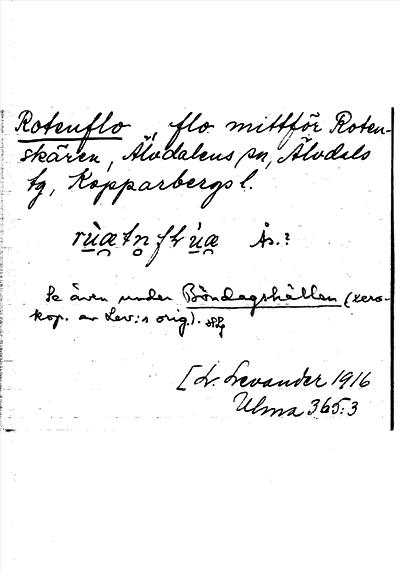 Rotenflo, flo mittför Roten-
skären, Älvdalens sn, Älvdals
tg, Kopparbergs l.
Ås.?
Se även under Böndagshällen (xero-
kop. av Lev:s orig.).
[L. Levander 1916
Ulma 365:3